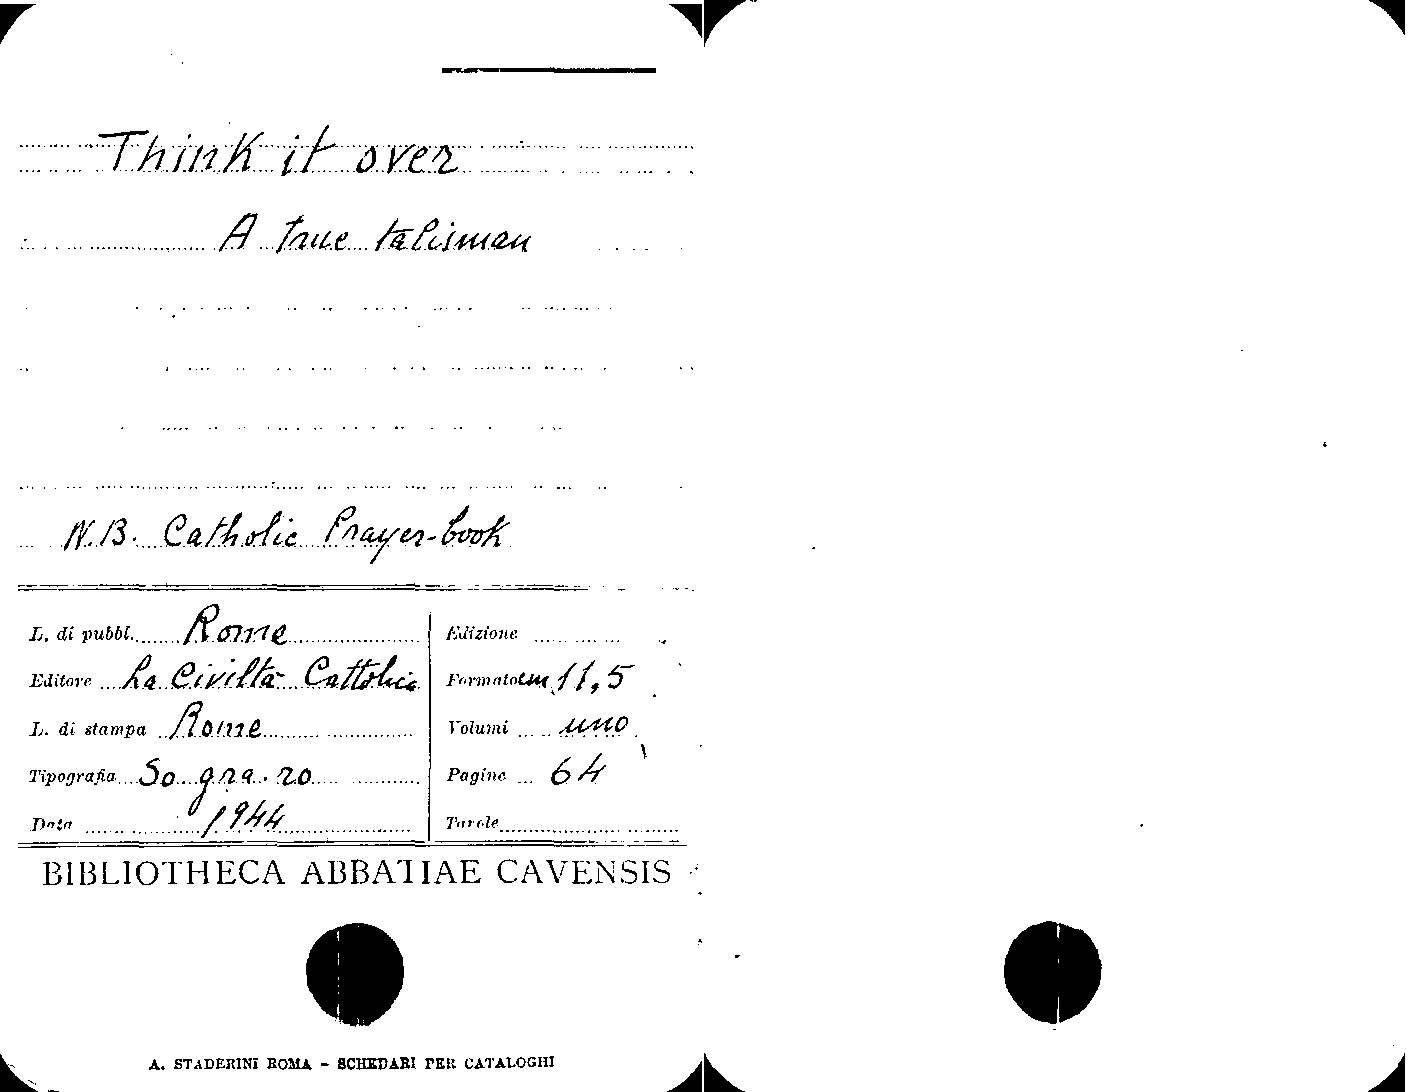 Think it over
A true talisman
N.B. Catholic Prayer-book
L. di pubbl. Rome
Editore La Civiltà Cattolica
L. di stampa Rome
Tipografia So. gra. ro
Data 1944
Edizione
Formato cm 11,5
Volumi uno
Pagine 64
Tavole
BIBLIOTHECA ABBATIAE CAVENSIS
A. STADERINI ROMA - SCHEDARI PER CATALOGHI